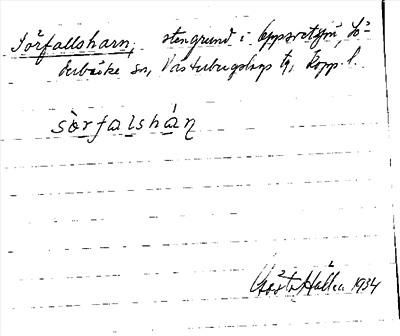 Sörfallsharn, stengrund i Uppsveten, Sö-
derbärke sn, Västerbergslags tg, Kopp. l.
sòrfalshán
Gösta Hallen 1934